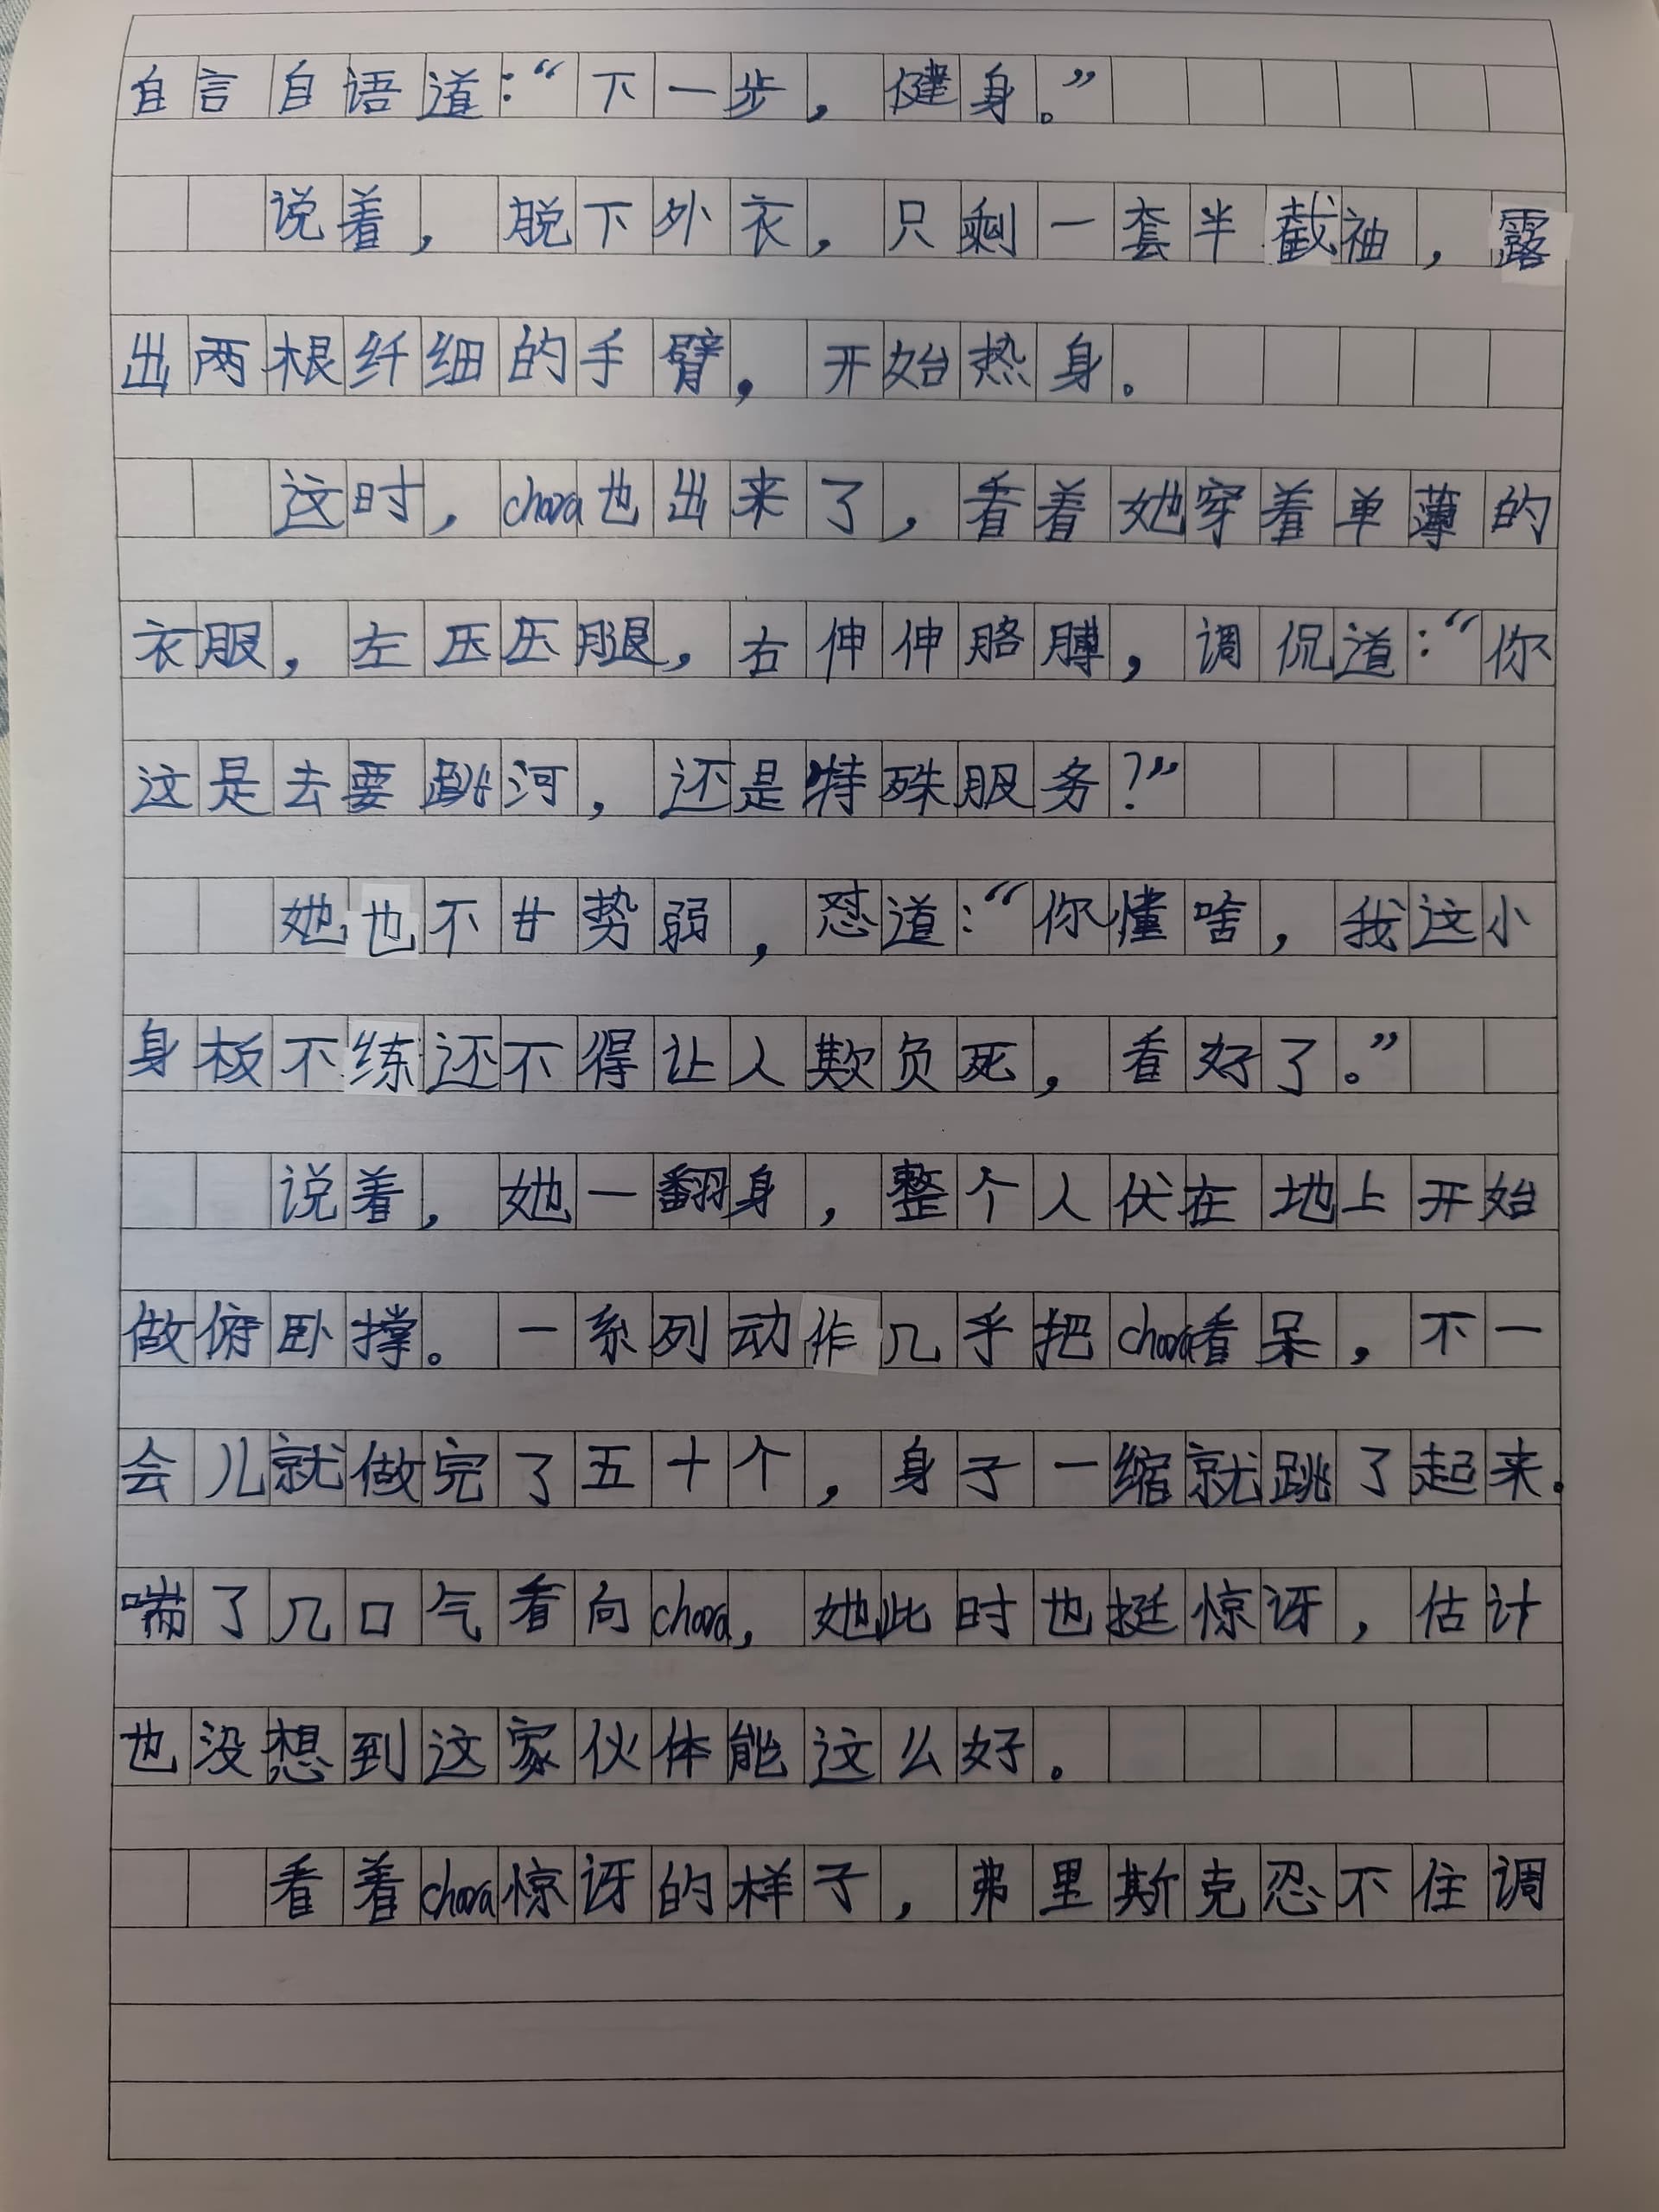 自言自语道：“下一步，健身。”
说着，脱下外衣，只剩一套半截袖，露
出两根纤细的手臂，开始热身。
这时，chara也出来了，看着她穿着单薄的
衣服，左压压腿，右伸伸胳膊，调侃道：“你
这是去要跳河，还是特殊服务？”
她也不甘势弱，怼道：“你懂啥，我这小
身板不练还不得让人欺负死，看好了。”
说着，她一翻身，整个人伏在地上开始
做俯卧撑。一系列动作几乎把chara看呆，不一
会儿就做完了五十个，身子一缩就跳了起来。
喘了几口气看向chara，她此时也挺惊讶，估计
也没想到这家伙体能这么好。
看着chara惊讶的样子，弗里斯克忍不住调